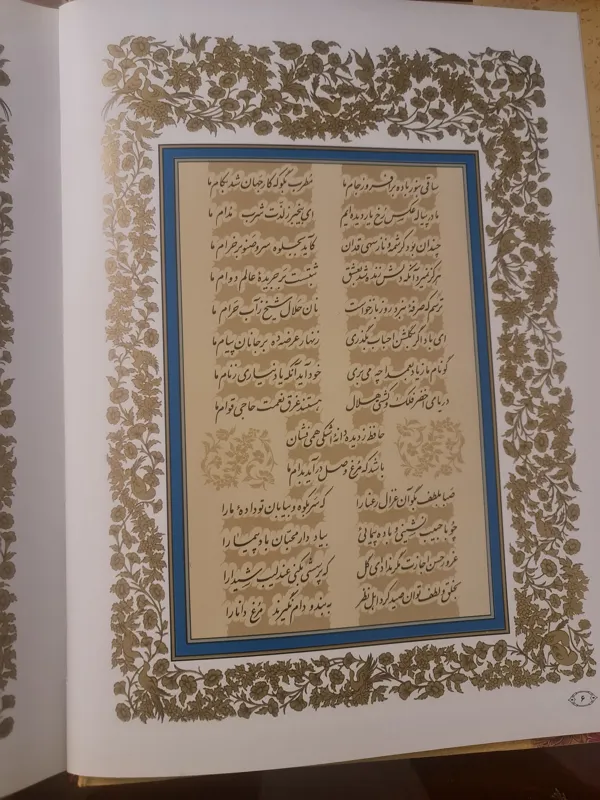 ساقی بنور باده برافروز جام ما مطرب بگو که کار جهان شد بکام ما
ما در پیاله عکس رخ یار دیده‌ایم ای بیخبر ز لذت شرب مدام ما
چندان بود کرشمه و ناز سهی قدان کاید بجلوه سرو صنوبر خرام ما
هرگز نمیرد آنکه دلش زنده شد بعشق ثبتست بر جریدهٔ عالم دوام ما
ترسم که صرفهٔ نبرد روز بازخواست نان حلال شیخ ز آب حرام ما
ای باد اگر بگلشن احباب بگذری زنهار عرضه ده بر جانان پیام ما
گو نام ما ز یاد بعمدا چه می‌بری خود آید آنکه یاد نیاری ز نام ما
دریای اخضر فلک و کشتی هلال هستند غرق نعمت حاجی قوام ما
حافظ ز دیده دانهٔ اشکی همی فشان
باشد که مرغ وصل درآید بدام ما
صبا بلطف بگو آن غزال رعنا را که سر بکوه و بیابان تو دادهٔ ما را
چو با حبیب نشینی و باده پیمائی بیاد دار محبان بادپیما را
غرور حسن اجازت مگر نداد ای گل که پرسشی نکنی عندلیب شیدا را
بخلق و لطف توان صید کرد اهل نظر به بند و دام نگیرند مرغ دانا را
۶